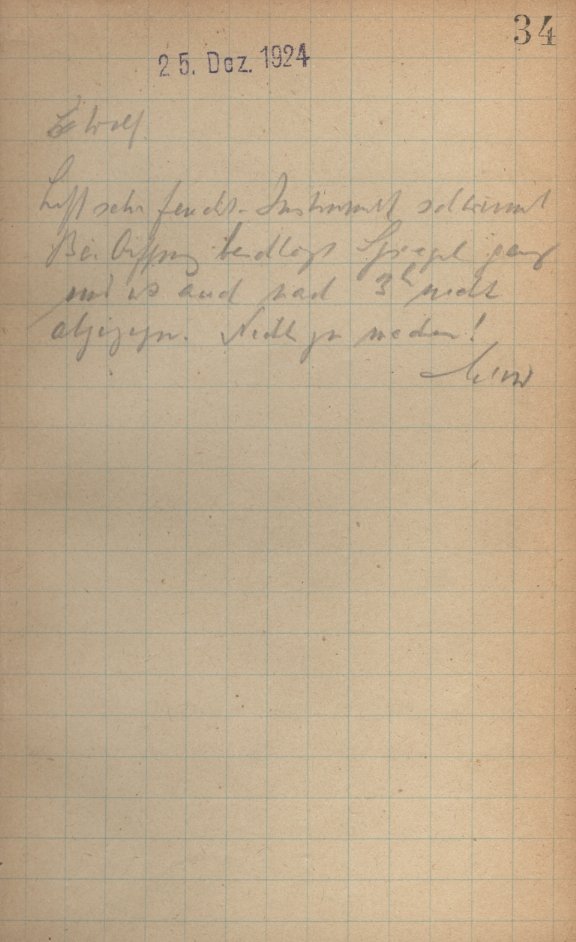 34
25. Dez. 1924
Wolf.
Luft sehr feucht. Instrument schwimmt
Bei Öffnung Spiegel ganz
und ist auch nach 3h nicht
abgezogen. Nichts zu machen!